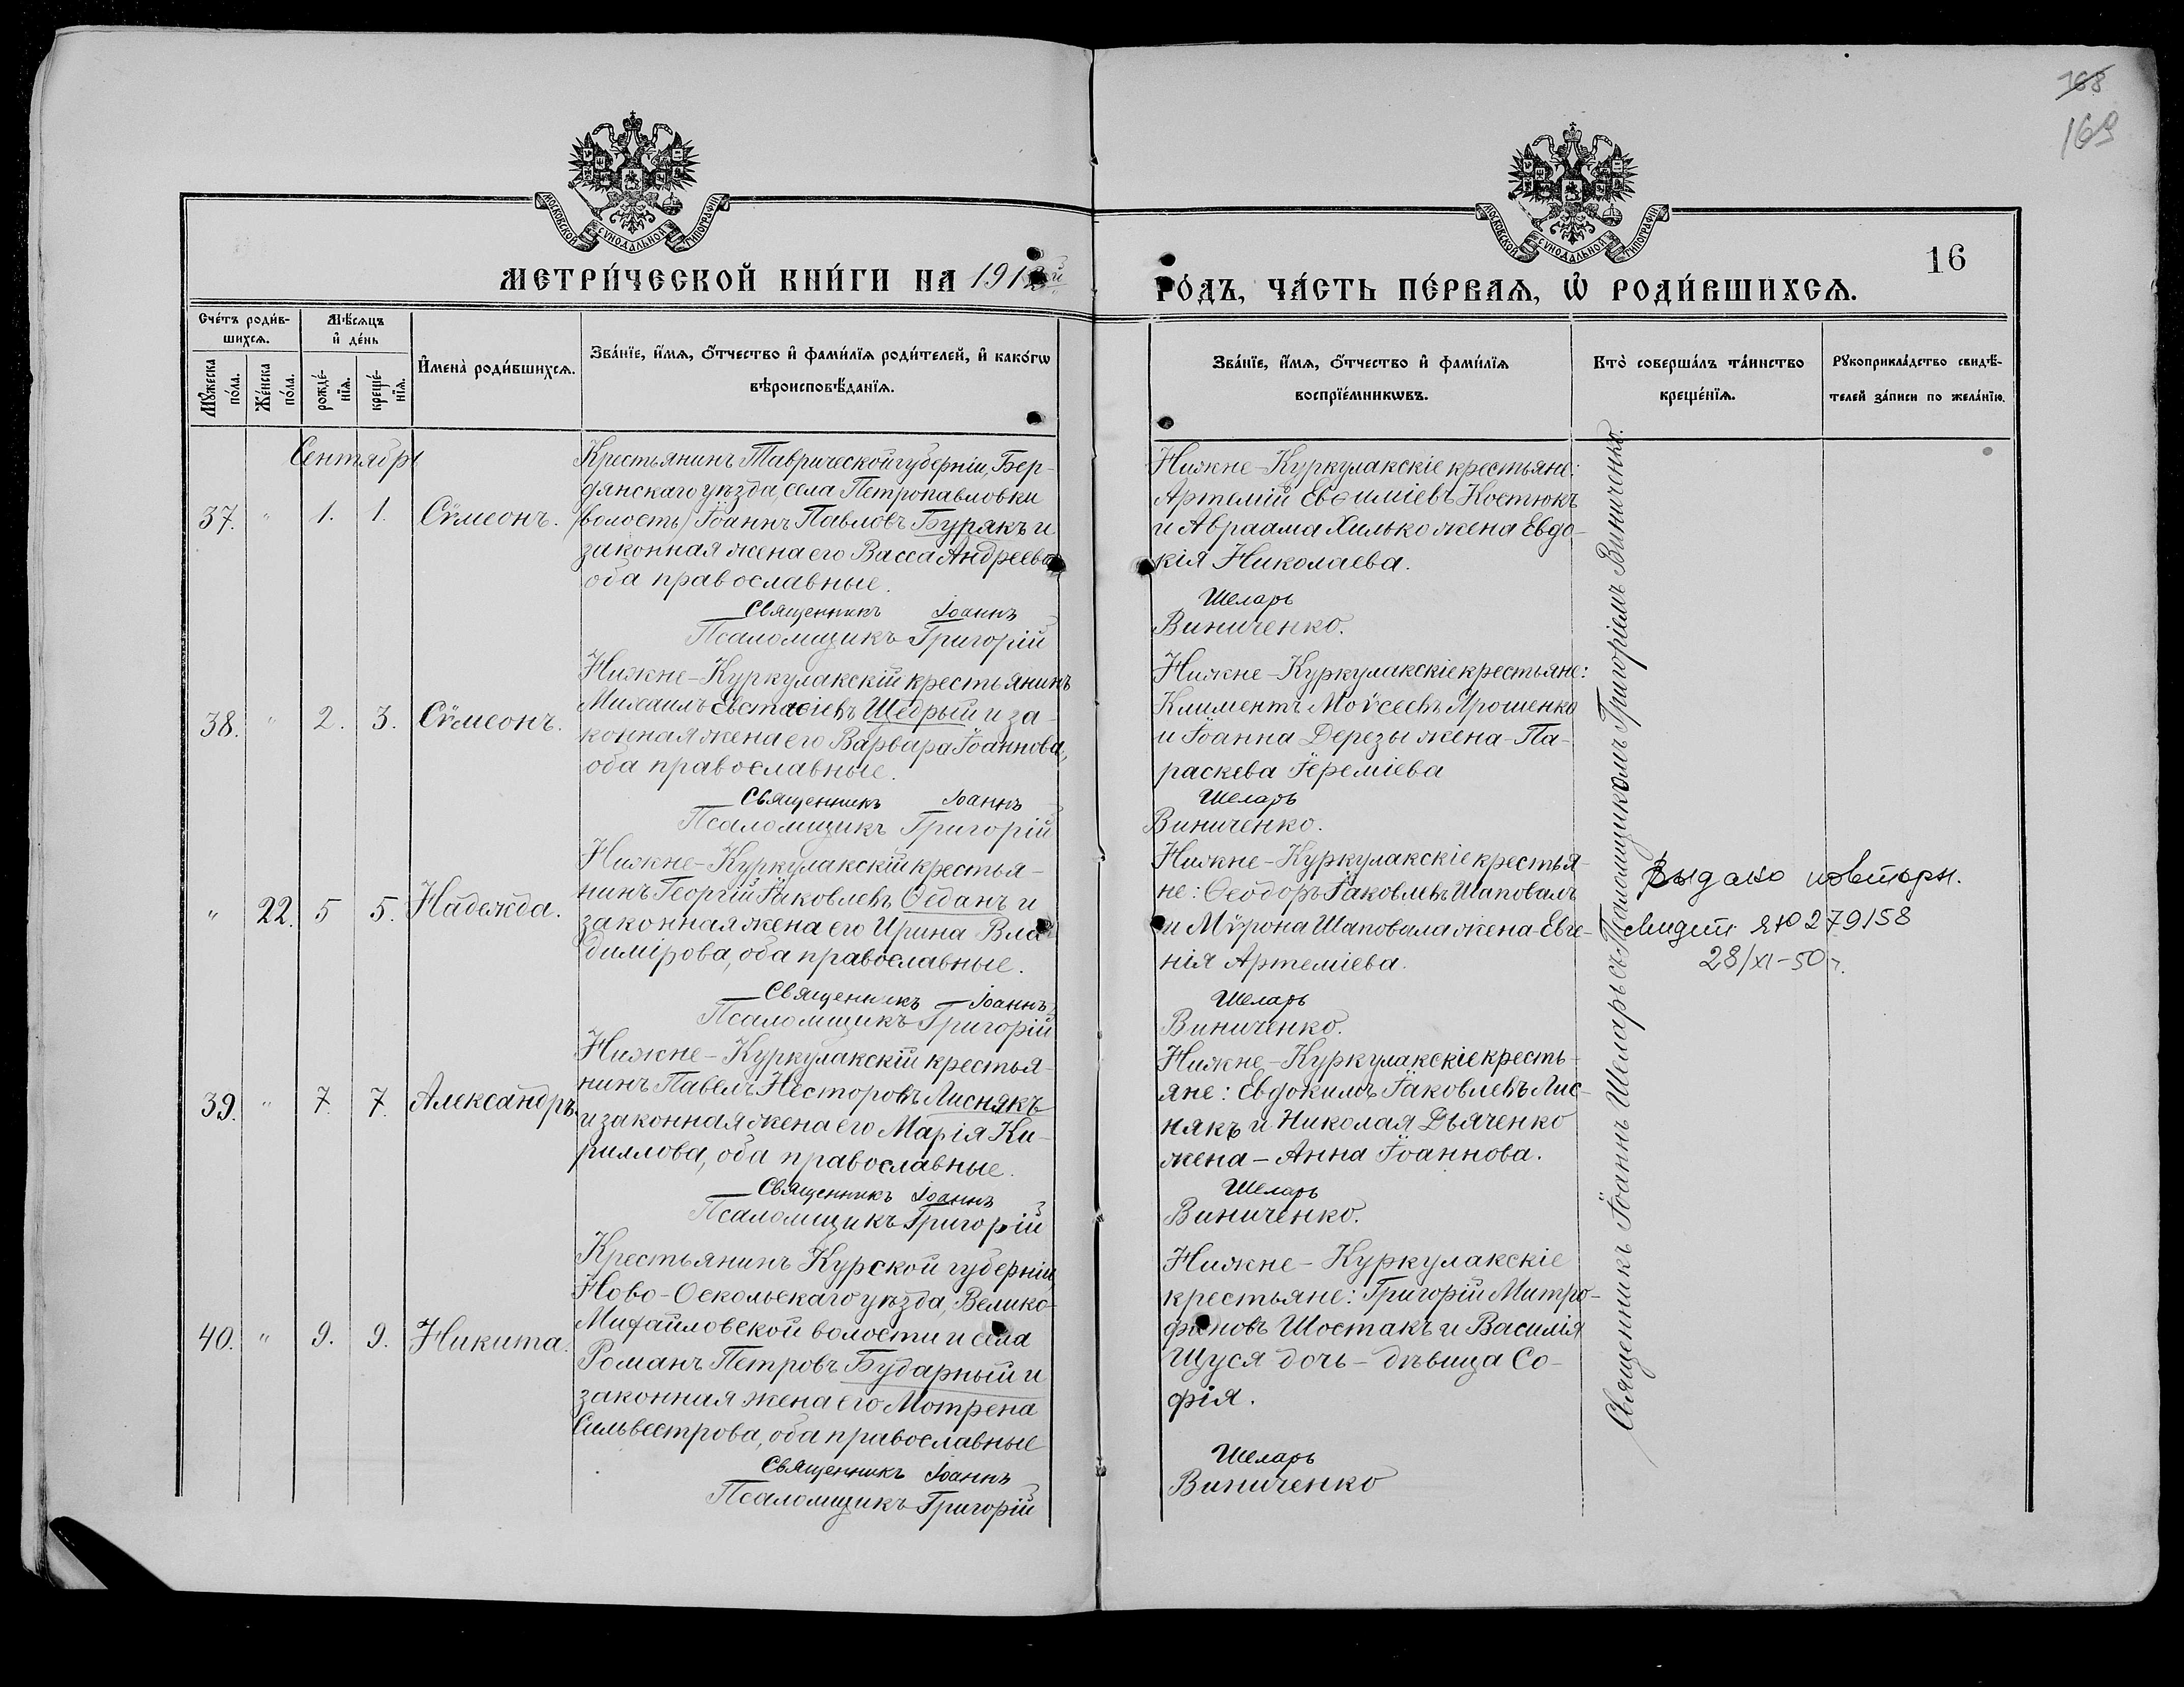 168
169
МОСКОВСКОЙ СѴНОДАЛЬНОЙ ТИПОГРАФІИ
МОСКОВСКОЙ СѴНОДАЛЬНОЙ ТИПОГРАФІИ
МЕТРИ́ЧЕСКОЙ КНИ́ГИ НА 191
ГО́ДЪ, ЧА́СТЬ ПЕ́РВАѦ, Ѽ РОДИ́ВШИХСѦ.
16
Сче́тъ роди́в-
шихсѧ.
Мѣ́сѧцъ
и҆ де́нь
Мꙋ́жеска
по́ла.
Же́нска
по́ла.
рожде́-
нїѧ.
креще́-
нїѧ.
И҆мена̀ роди́вшихсѧ.
Зва́нїе, и҆́мѧ, ѻ҆́тчество и҆ фами́лїѧ роди́телей, и҆ како́гѡ
вѣроисповѣ́данїѧ.
Зва́нїе, и҆́мѧ, ѻ҆́тчество и҆ фами́лїѧ
воспрїе́мникѡвъ.
Кто̀ соверша́лъ та́инство
креще́нїѧ.
Рꙋкоприкла́дство свидѣ́-
телей за́писи по жела́нїю.
Сентябрь
37. " 1. 1. Сѷмеонъ.
Крестьянинъ Таврической губерніи, Бер-
дянскаго уѣзда, села Петропавловки
(волость) Іоаннъ Павловъ Бурякъ и
законная жена его Васса Андреева
оба православные.
Священникъ Іоаннъ
Псаломщикъ Григорій
Нижне-Куркулакскіе крестьяне:
Артемій Евѳиміевъ Костюкъ
и Авраама Хилько жена Евдо-
кія Николаева.
Шеларь
Виниченко.
38. " 2. 3. Сѷмеонъ.
Нижне-Куркулакскій крестьянинъ
Михаилъ Евстаѳіевъ Щедрый и за-
конная жена его Варвара Іоаннова,
оба православные.
Священникъ Іоаннъ
Псаломщикъ Григорій
Нижне-Куркулакскіе крестьяне:
Климентъ Моѵсеевъ Ярошенко
и Іоанна Дерезы жена-Па-
раскева Іереміева
Шеларь
Виниченко.
" 22. 5 5. Надежда.
Нижне-Куркулакскій крестья-
нинъ Георгій Іаковлевъ Ѳеданъ и
законная жена его Ирина Вла-
димірова, оба православные.
Священникъ Іоаннъ
Псаломщикъ Григорій
Нижне-Куркулакскіе крестья-
не: Ѳеодоръ Іаковлевъ Шаповалъ
и Мѵрона Шаповала жена-Евге-
нія Артеміева.
Шеларь
Виниченко.
39. " 7. 7. Александръ.
Нижне-Куркулакскій крестья-
нинъ Павелъ Несторовъ Лиснякъ
и законная жена его Марія Ки-
риллова, оба православные.
Священникъ Іоаннъ
Псаломщикъ Григорій
Нижне-Куркулакскіе кресть-
яне: Евдокимъ Іаковлевъ Лис-
някъ и Николая Дьяченко
жена-Анна Іоаннова.
Шеларь
Виниченко.
40. " 9. 9. Никита.
Крестьянинъ Курской губерніи,
Ново-Оскольскаго уѣзда, Велико-
Михайловской волости и села
Романъ Петровъ Бударный и
законная жена его Мотрена
Сильвестрова, оба православные
Священникъ Іоаннъ
Псаломщикъ Григорій
Нижне-Куркулакскіе
крестьяне: Григорій Митро-
фановъ Шостакъ и Василія
Щуся дочь-дѣвица Со-
фія.
Шеларь
Виниченко
Священникъ Іоаннъ Шеларь съ Псаломщикомъ Григоріемъ Виниченко.
Выдано повторн.
свидет ЯЮ 279158
28/XI-50 г.